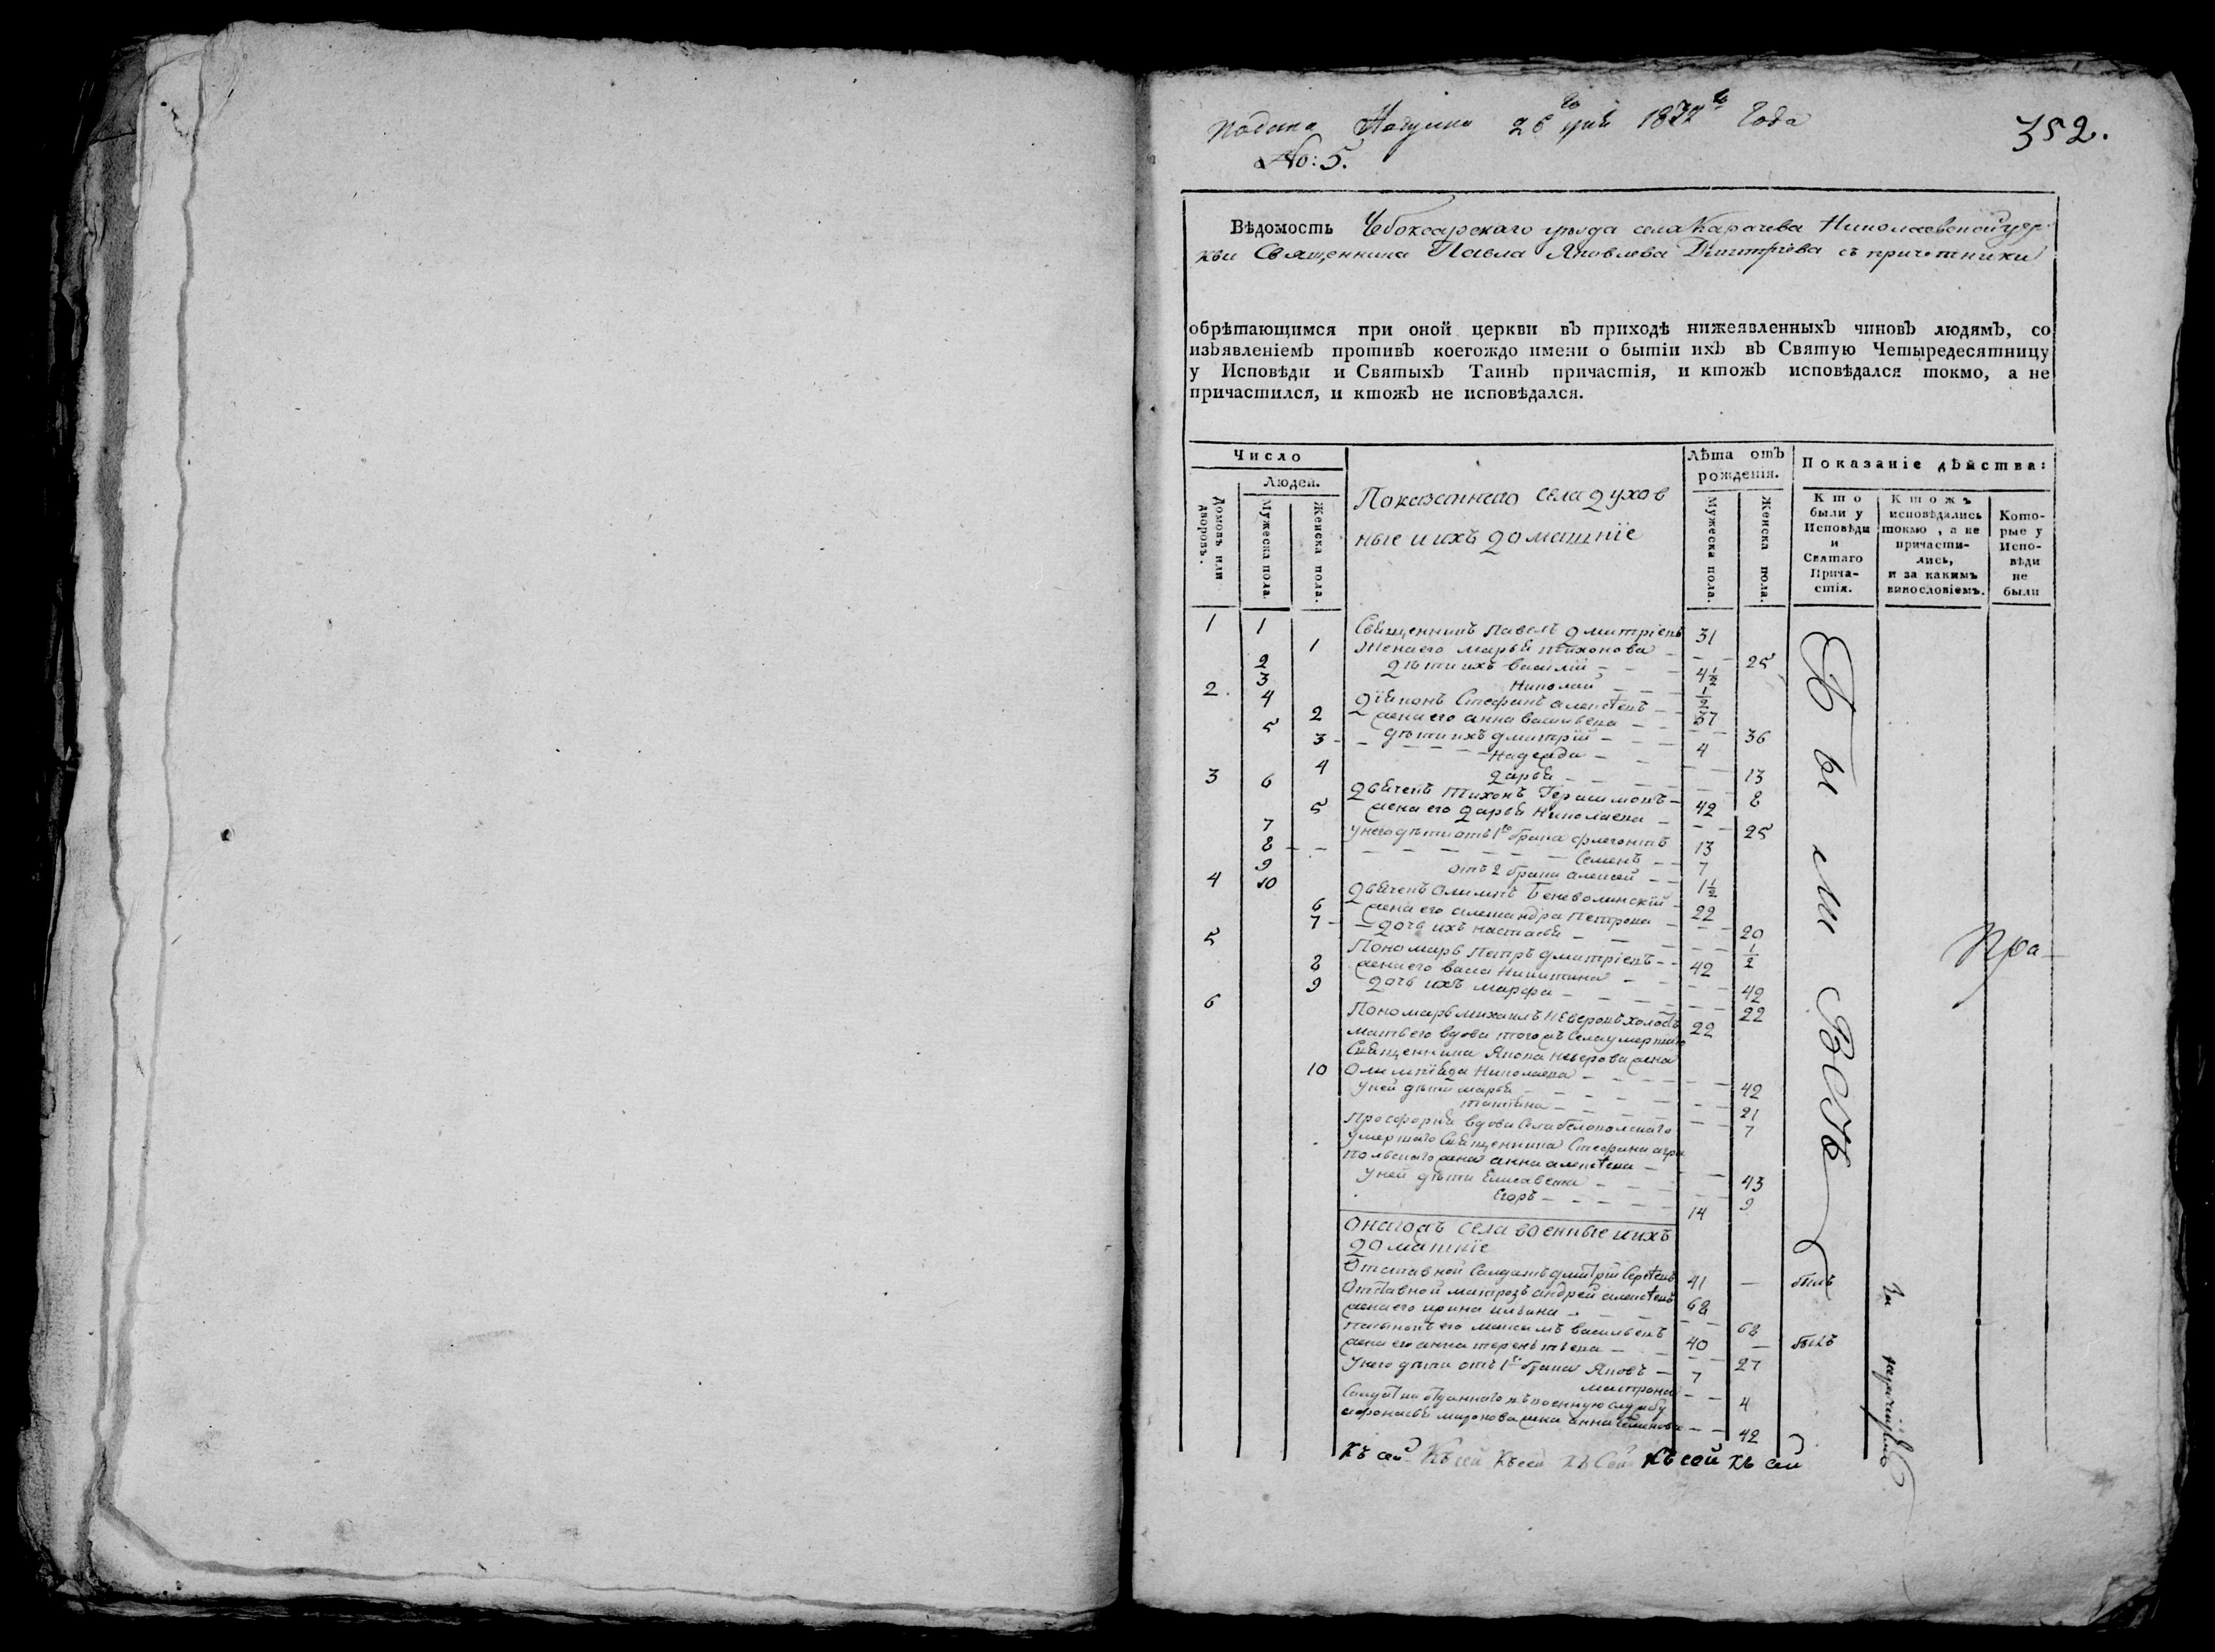 подана Августа 26 дня 1822го Года
352.
No: 5.
Вѣдомость Чебоксарскаго уѣзда села Карачева Николаевской цер
кви Священника Павла Яковлева Дмитрiева съ причетники
обрѣтающимся при оной церкви въ приходѣ нижеявленныхъ чиновъ людямъ, со
изъявленiемъ противъ коегождо имени о бытiи ихъ въ Святую Четыредесятницу
у Исповѣди и Святыхъ Таинъ причастiя, и ктожъ исповѣдался токмо, а не
причастился, и ктожъ не исповѣдался.
Число
Людей.
Домовъ или дворовъ.
Мужеска пола.
Женска пола.
Показаннаго села духов
ные и ихъ домашнiе
Лѣта отъ рожденiя.
Мужеска пола.
Женска пола.
Показанiе дѣйства:
Кто были у Исповѣди и Святаго Прича- стiя.
Ктожъ исповѣдались токмо, а не причасти- лись, и за какимъ винословiемъ.
Кото- рые у Испо- вѣди не были
1 1 Священникъ Павелъ Дмитрiевъ 31
1 Жена его Марья Тихонова 25
2 Дѣти ихъ Василiй 4½
3 Николай ½
2 4 Дiяконъ Стефанъ Алексѣевъ 37
2 жена его Анна Васильева 36
5 дѣти ихъ Дмитрiй 4
3 Надежда 13
4 Дарья 8
3 6 Дьячекъ Тихонъ Герасимовъ 42
5 жена его Дарья Николаева 25
7 у него дѣти отъ 1го брака Флегонтъ 13
8 Семенъ 7
9 отъ 2 брака Алексей 1½
4 10 Дьячекъ Олимпъ Беневолинскiй 22
6 жена его Александра Петрова 20
7 дочь ихъ Настасья ½
5 Пономарь Петръ Дмитрiевъ 42
8 жена его Васса Никитина 42
9 дочь ихъ Марфа 22
6 Пономарь Михаилъ Неверовъ холостъ 22
мать его вдова тогожъ села умершаго
Священника Якова Неверова жена
10 Олимпiяда Николаева 42
У ней дѣти Марья 21
Татьяна 7
Просфорня вдова села
умершаго Священника Стефана
жена Анна Алексѣева 43
У ней дѣти Елисавета 9
Егоръ 14
Онагожъ села военные и ихъ
домашнiе
Отставной Салдатъ Дмитрiй Сергѣевъ 41 былъ
Отставной матрозъ Андрей Алексѣевъ 68
жена его Ирина Ильина 68
его Максимъ Васильевъ 40 былъ
жена его Анна Терентьева 27
У него дѣти отъ 1го брака Яковъ 7
Матрона 4
Салдатка отданнаго въ военную службу
Миронова жена Анна 42
Были Всѣ
Пра-
Къ сей Къ сей Къ сей Къ Сей Къ сей Къ сей